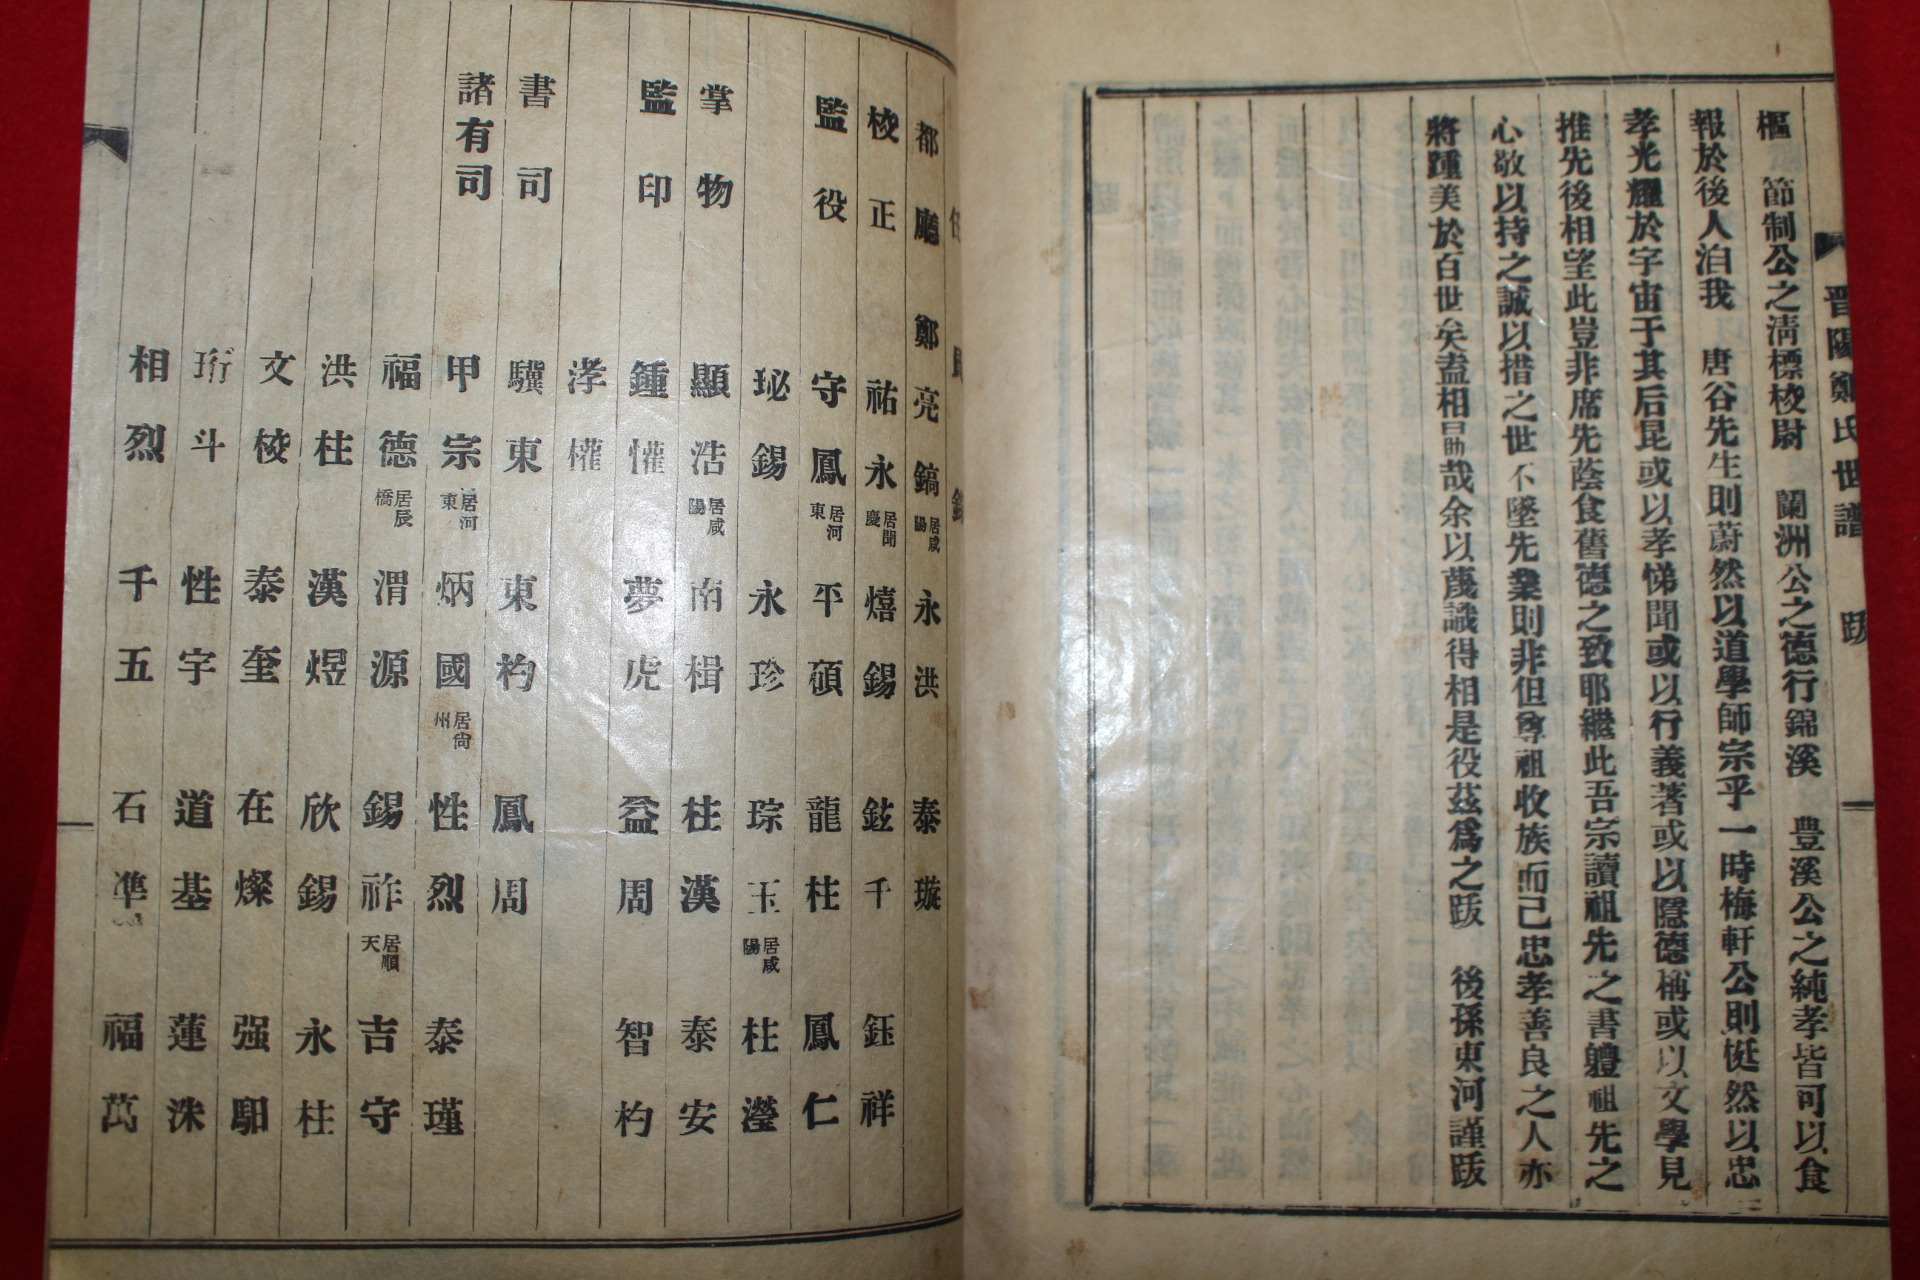 晋陽鄭氏世譜 跋
樞 節制公之淸標梭尉 蘭洲公之德行錦溪 豊溪公之純孝皆可以食
報於後人洎我 唐谷先生則蔚然以道學師宗乎一時梅軒公則挺然以忠
孝光耀於宇宙于其后昆或以孝悌聞或以行義著或以隱德稱或以文學見
推先後相望此豈非席先蔭食舊德之致耶繼此吾宗讀祖先之書軆祖先之
心敬以持之誠以措之世不墜先業則非但尊祖收族而己忠孝善良之人亦
將踵美於百世矣盍相勗哉余以蔑識得相是役茲爲之跋 後孫東河謹跋
任員錄
都廳 鄭亮鎬 居咸陽 永洪 泰璇
梭正 祐永 居聞慶 熺錫 鉉千 鈺祥
監役 守鳳 居河東 平碩 龍柱 鳳仁
珌錫 永珍 琮玉 居咸陽 柱瀅
掌物 顯浩 居咸陽 南楫 柱漢 泰安
監印 鍾懽 夢虎 益周 智杓
涍權
書司 驥東 東杓 鳳周
諸有司 甲宗 居河東 炳國 居尙州 性烈 泰瑾
福德 居辰橋 渭源 錫祚 居順天 吉守
洪柱 漢煜 欣錫 永柱
文梭 泰奎 在燦 强馹
珩斗 性宇 道基 蓮洙
相烈 千五 石準 福萬